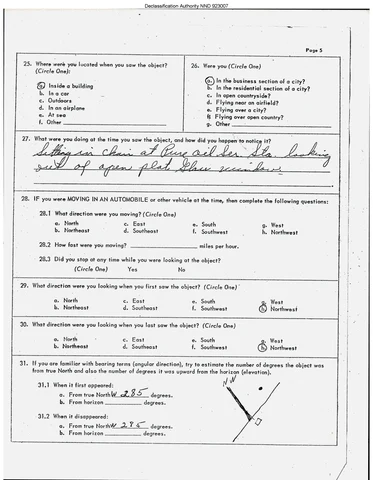 Declassification Authority NND 923007
Page 5
25. Where were you located when you saw the object?
(Circle One):
a. Inside a building
b. In a car
c. Outdoors
d. In an airplane
e. At sea
f. Other
26. Were you (Circle One)
a. In the business section of a city?
b. In the residential section of a city?
c. In open countryside?
d. Flying near an airfield?
e. Flying over a city?
f. Flying over open country?
g. Other
27. What were you doing at the time you saw the object, and how did you happen to notice it?
Sitting in chair at Pure oil Ser Sta. looking
out of open plat Glass window
28. IF you were MOVING IN AN AUTOMOBILE or other vehicle at the time, then complete the following questions:
28.1 What direction were you moving? (Circle One)
a. North c. East e. South g. West
b. Northeast d. Southeast f. Southwest h. Northwest
28.2 How fast were you moving? miles per hour.
28.3 Did you stop at any time while you were looking at the object?
(Circle One) Yes No
29. What direction were you looking when you first saw the object? (Circle One)
a. North c. East e. South g. West
b. Northeast d. Southeast f. Southwest h. Northwest
30. What direction were you looking when you last saw the object? (Circle One)
a. North c. East e. South g. West
b. Northeast d. Southeast f. Southwest h. Northwest
31. If you are familiar with bearing terms (angular direction), try to estimate the number of degrees the object was
from true North and also the number of degrees it was upward from the horizon (elevation).
31.1 When it first appeared:
a. From true North W 285 degrees.
b. From horizon degrees.
31.2 When it disappeared:
a. From true North W 285 degrees.
b. From horizon degrees.
N W